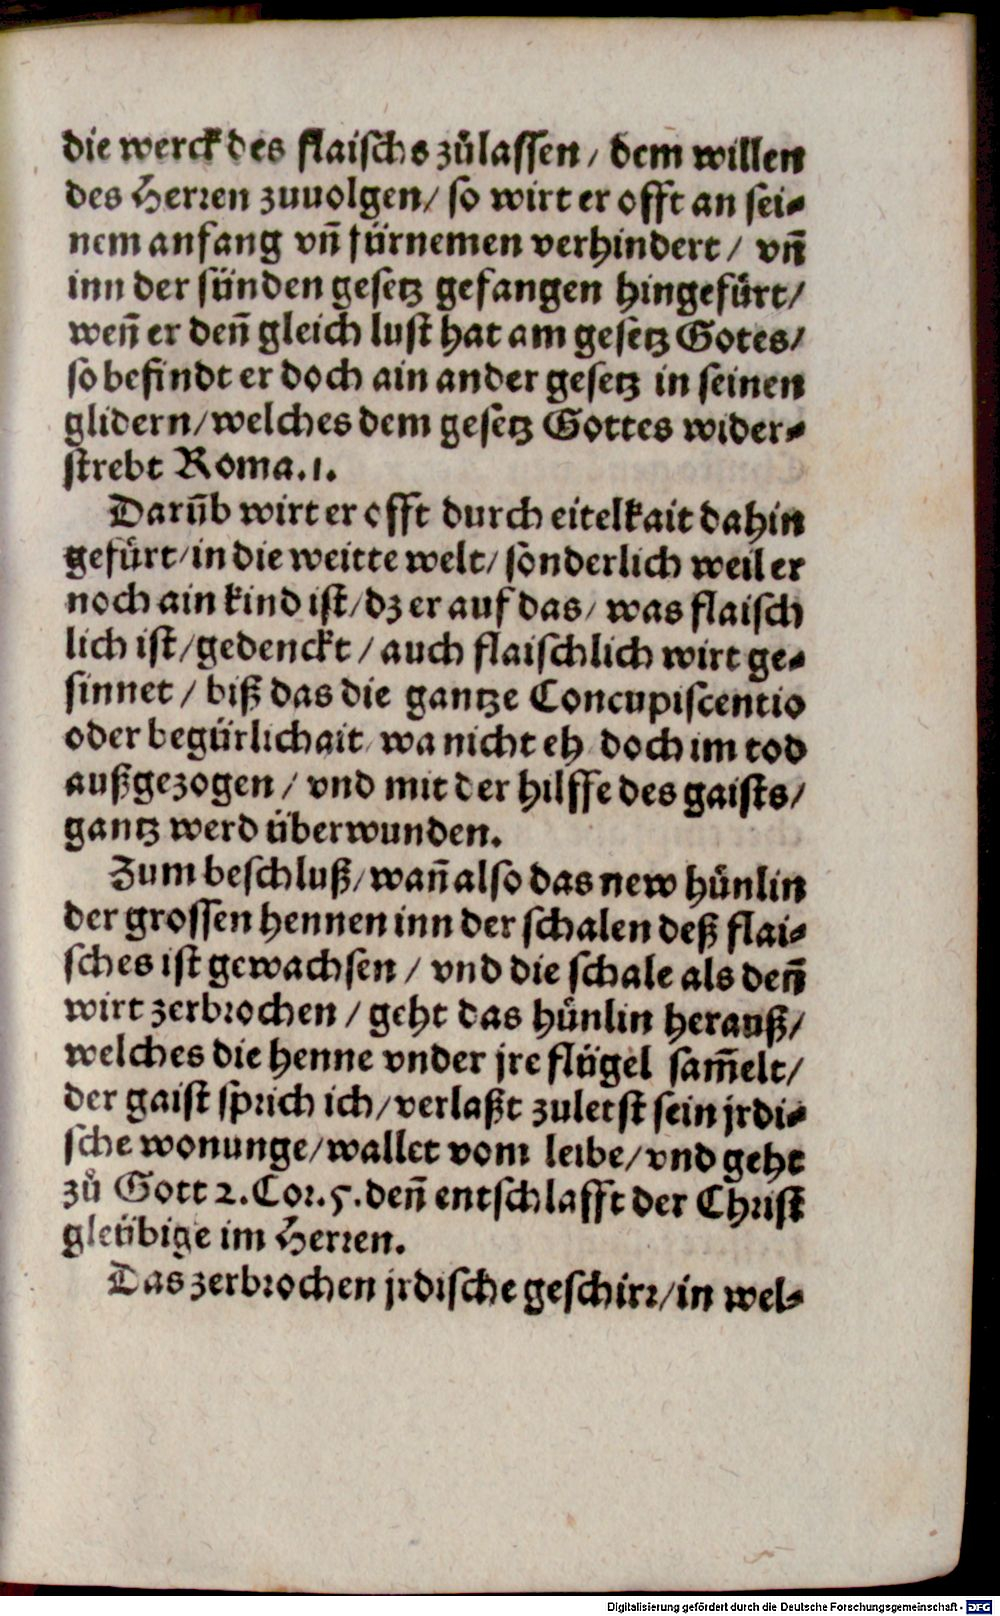 die werck des flaischs zůlassen / dem willen
des Herꝛen zuuolgen / so wirt er offt an sei⸗
nem anfang vñ fürnemen verhindert / vñ
inn der sünden gesetz gefangen hingefürt /
weñ er deñ gleich lust hat am gesetz Gotes /
so befindt er doch ain ander gesetz in seinen
glidern / welches dem gesetz Gottes wider⸗
strebt Roma. 1.
Darūb wirt er offt durch eitelkait dahin
gefürt / in die weitte welt / sonderlich weil er
noch ain kind ist / dz er auf das / was flaisch
lich ist / gedenckt / auch flaischlich wirt ge⸗
sinnet / biß das die gantze Concupiscentio
oder begürlichait / wa nicht eh doch im tod
außgezogen / vnd mit der hilffe des gaists /
gantz werd überwunden.
Zum beschluß / wañ also das new hünlin
der grossen hennen inn der schalen deß flai⸗
sches ist gewachsen / vnd die schale als deñ
wirt zerbꝛochen / geht das hünlin herauß /
welches die henne vnder jre flügel sam̄elt /
der gaist spꝛich ich / verlaßt zuletst sein jrdi⸗
sche wonunge / wallet vom leibe / vnd geht
zů Gott 2. Coꝛ. 5. deñ entschlafft der Chꝛist
gleübige im Herꝛen.
Das zerbꝛochen jrdische geschirꝛ / in wel⸗
Digitalisierung gefördert durch die Deutsche Forschungsgemeinschaft - DFG